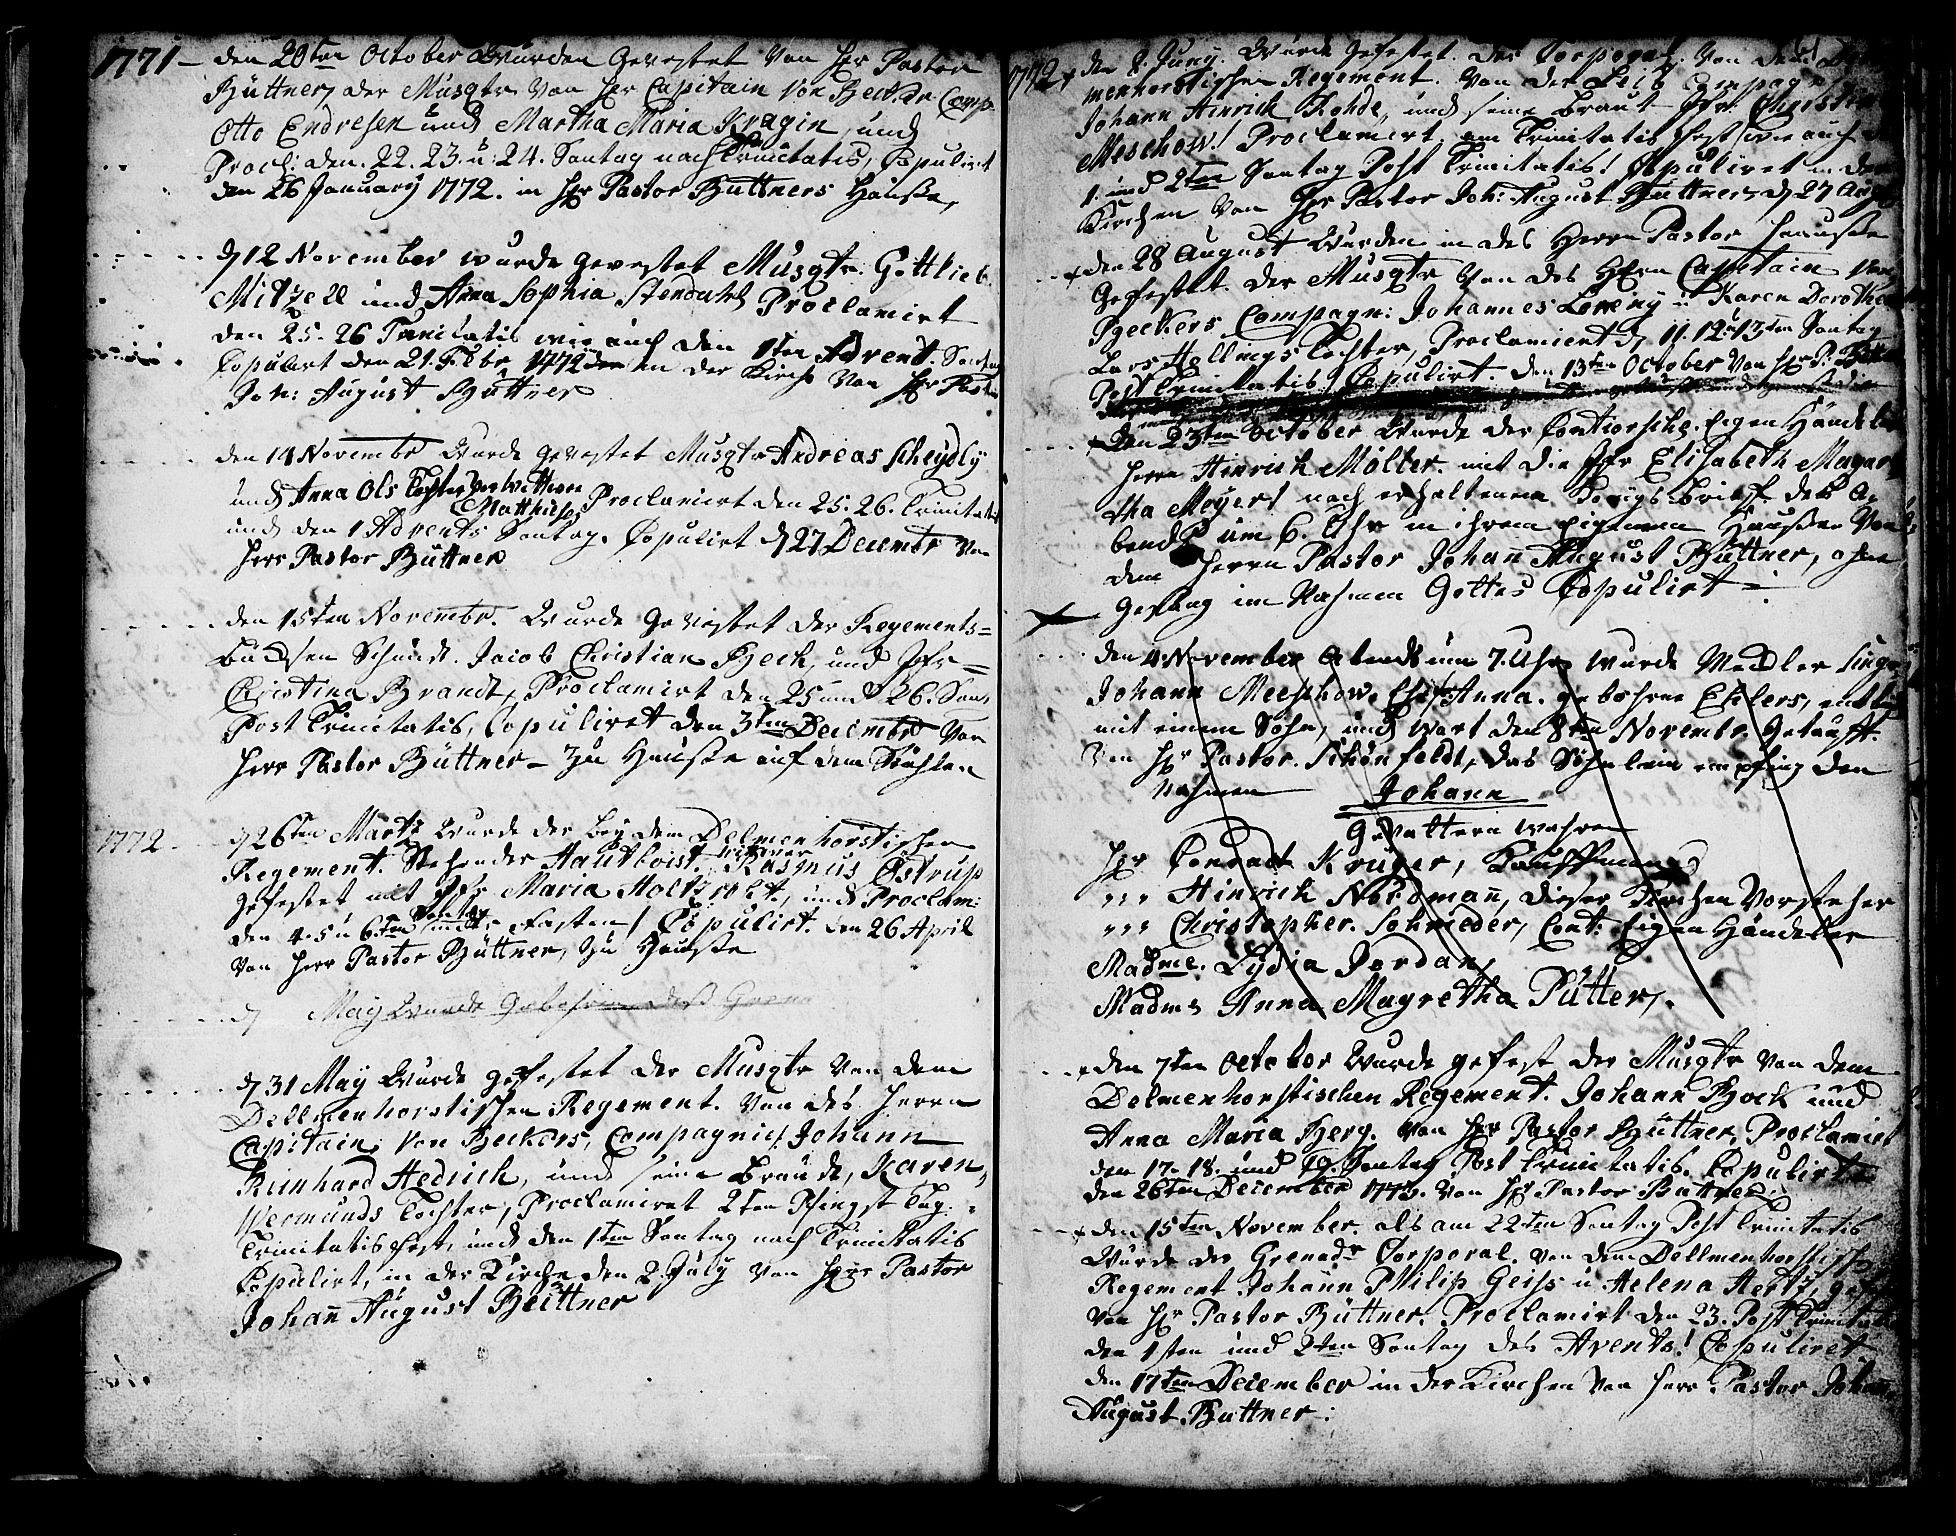 1771 – den 20ten October Wurden Gevestet Von Hr Pastor
Büttner, der Musqtr Von Hr Capitain von Beck: dr Comp
Otto Endresen und Martha Maria Kragin, und
Procl: den. 22. 23. u: 24. Sontag nach Trinitatis, Copulirt
den 26 January 1772. in Hr Pastor Büttners Hauße,
d 12 November wurde gevestet Musqtr: Gottlieb
Mitzell und Anna Sophia Stendahls Proclamirt
den 25. 26 Trinitatis wie auch den 1ten Advent. Sontag
Copulirt den 21. Febr 1772 in der Kirche Von Hr Pastor
Joh: August Büttner
den 14 Novembr Wurde gevestet Musqtr Andreas Scheydly
und Anna Ols Tochter
Matthiess Proclamirt den 25. 26. Trinitatis
und den 1 Advents Sontag. Copulirt d 27 Decembr Von
Herr Pastor Büttner
den 15ten Novembr. Wurde Gevestet der Regements=
büchsen Schmidt. Jacob Christian Beck, und Jfr=
Christina Brandt, Proclamirt den 25 und 26. Son.
Post Trinitatis, Copuliret den 3ten Decembr Von
Herr Pastor Büttner – Zu Hauße auf dem
1772. d 26ten Martz Wurde der bey dem Delmenhorstischen
Regement. Stehender Hautboist. Rasmus Östrup
gefestet mit Jfr Maria Holtz, und Proclam:
den 4. 5 u 6ten Sontag Fasten / Copulirt. den 26 April
Von Herr Pastor Büttner, Zu Hauße
d May Wurde Gebohren
d 31 May Wurde gefestet der Musqtr Von dem
Dellmenhorstischen Regement. Von des Herrn
Capitain. Von Beckers, Compagnie / Johann
Reinhard Hedrich, und seine Braudt, Karen,
Wermunds Tochter, Proclamiret 2ten Pfingst Tag:
Trinitatis fest, und den 1ten Sontag nach Trinitatis
Copulirt, in der Kirche den 2. July Von Hr Pastor
Johan August Büttner
61
1772 den 8. Juny. Wurde Gefestet. der Corporal. Von dem
menhorstischen Regement. Von der Leib Compagnie
Johann Hinrich Rohde, und seine Braut Jfr.
Meschow! Proclamirt, am Trinitatis fest wie auch
1. und 2ten Sontag Post Trinitatis! Copuliret in der
Kirchen Von Hr Pastor Joh: August Büttner, d 27 Aug
den 28 August Wurden in des Herrn Pastor Hauße
Gefestet. der Musqtr Von des Hern Capitain Von
Beckers Compagn: Johannes Loreny u Karen Dorothea
Lars Tochter, Proclamirt d, 11. 12 13ten Sontag
Post Trinitatis / Copulirt. den 13ten October Von Hr P:
Den 23ten October Wurde der Eigen Händler
Herr Hinrich Mölter. mit die Jfr Elisabeth Magare
tha Meyers nach erhaltenem Königs brief des A=
bends um 6. Uhr in ihrem Eigenen Hauße Von
dem Herrn Pastor Johan August Büttner, ohne
Gesang im Nahmen Gottes Copulirt –
den 4 November Abends um 7. Uhr wurde Medler
Johann Meeschow. Anna. gebohrne Ehlers,
mit einem Sohn, und wart den 8ten Novembr. Getaufft.
Von Hr Pastor. Schönfeldt, das Söhnlein empfing den
Nahmen Johann
Gevattern wahren
Hr Conradt Krüger, Kauffman
,,, Hinrich Nordman, dieser Kirchen Vorsteher
,,, Christopher. Schrieder, Cont: Eigen Händeler
Madme. Lydia Jordan,
Madme Anna Magretha Pütter,.
den 7ten October Wurde gefest der Musqtr Von dem
Delmenhorstischen Regement. Johann Bock und
Anna Maria Berg. Von Hr Pastor Büttner, Proclamirt
den 17. 18. und 19. Sontag Post Trinitatis. Copulirt
den 26ten December 1773. Von Hr Pastor Büttner.
den 15ten November. als am 22ten Sontag Post Trinitatis
Wurde der Grenadr Corporal. Von dem Dellmenhorstisch
Regement Johann Philip Geiss u Helena Hertz,
Von Hr Pastor Büttner. Proclamirt den 23. Post Trinitatis
den 1sten und 2ten Sontag des Avents! Copuliret
den 17ten December in der Kirchen Von Herr Pastor Johan
August. Büttner: